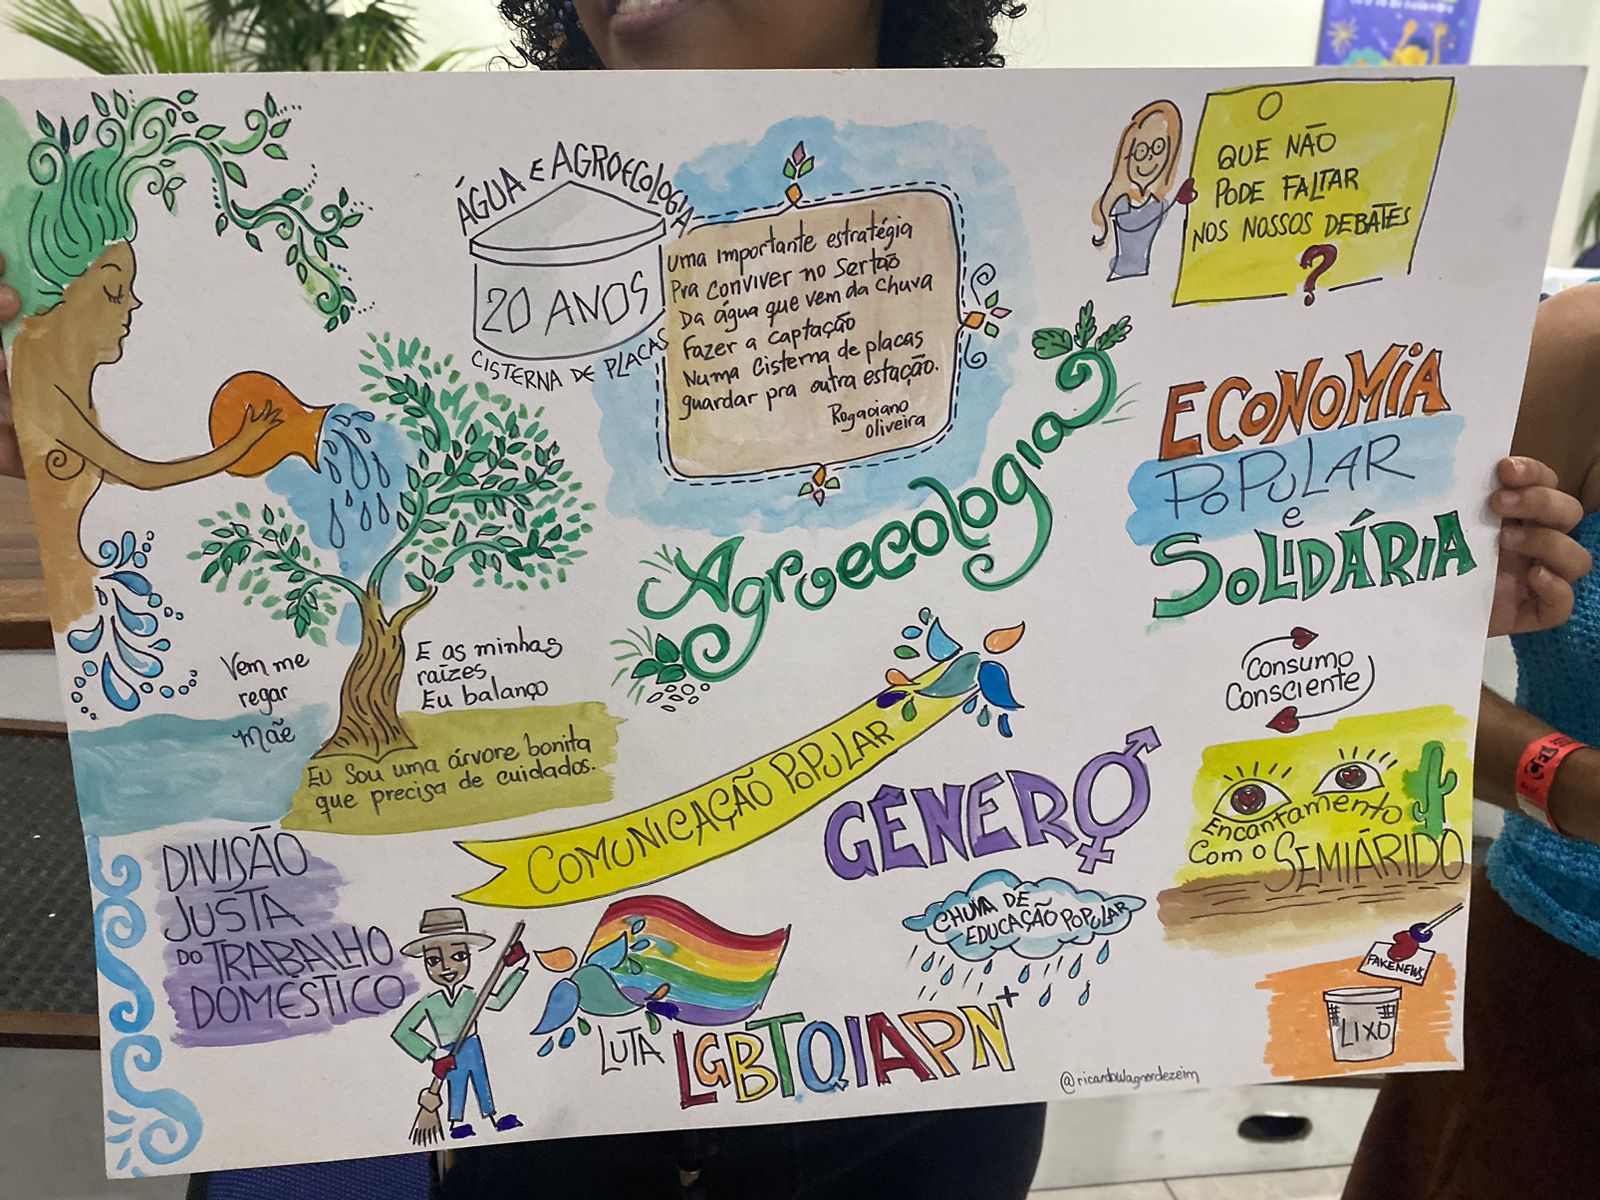 ÁGUA E AGROECOLOGIA
20 ANOS
CISTERNA DE PLACAS
uma importante estratégia
Pra conviver no Sertão
Da água que vem da chuva
Fazer a captação
Numa Cisterna de placas
guardar pra outra estação.
Rogaciano
Oliveira
O
QUE NÃO
PODE FALTAR
NOS NOSSOS DEBATES
?
Agroecologia
ECONOMIA
POPULAR
e
SOLIDÁRIA
Consumo
Consciente
Encantamento
Com o SEMIÁRIDO
Vem me
regar
mãe
E as minhas
raízes
Eu balanço
Eu Sou uma árvore bonita
que precisa de cuidados.
COMUNICAÇÃO POPULAR
GÊNERO
CHUVA DE
EDUCAÇÃO POPULAR
DIVISÃO
JUSTA
DO TRABALHO
DOMESTICO
LUTA LGBTQIAPN+
FAKENEWS
LIXO
@ricardowagnerdezeim